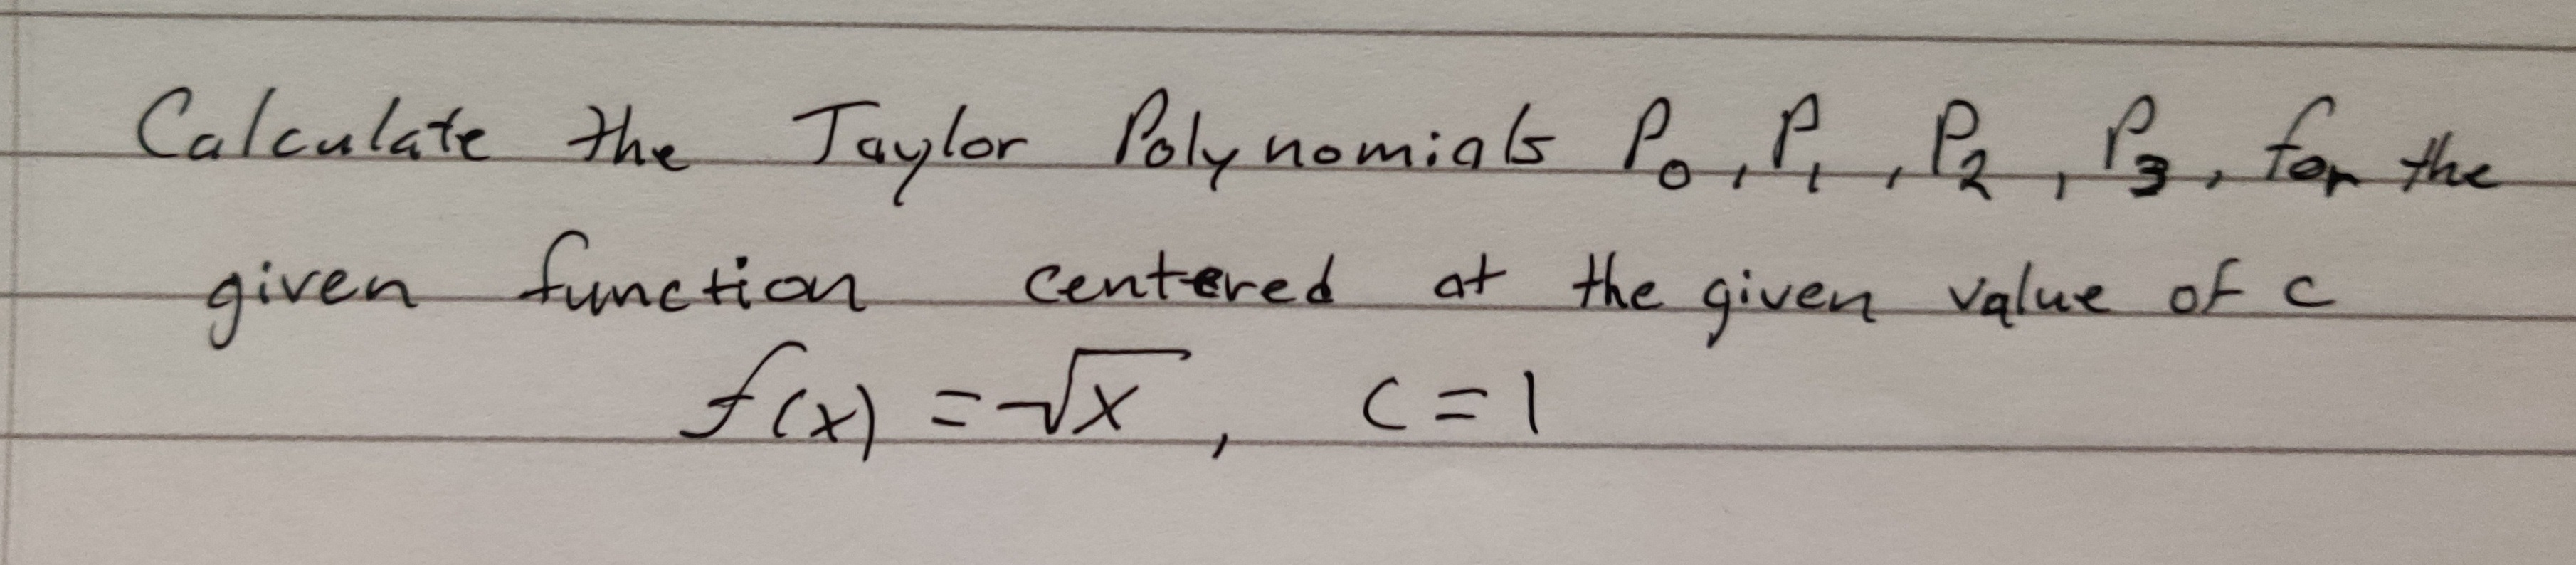 Calculate the Taylor Polynomials P₀, P₁, P₂, P₃, for the
given function centered at the given value of c
f(x) = √x, c = 1